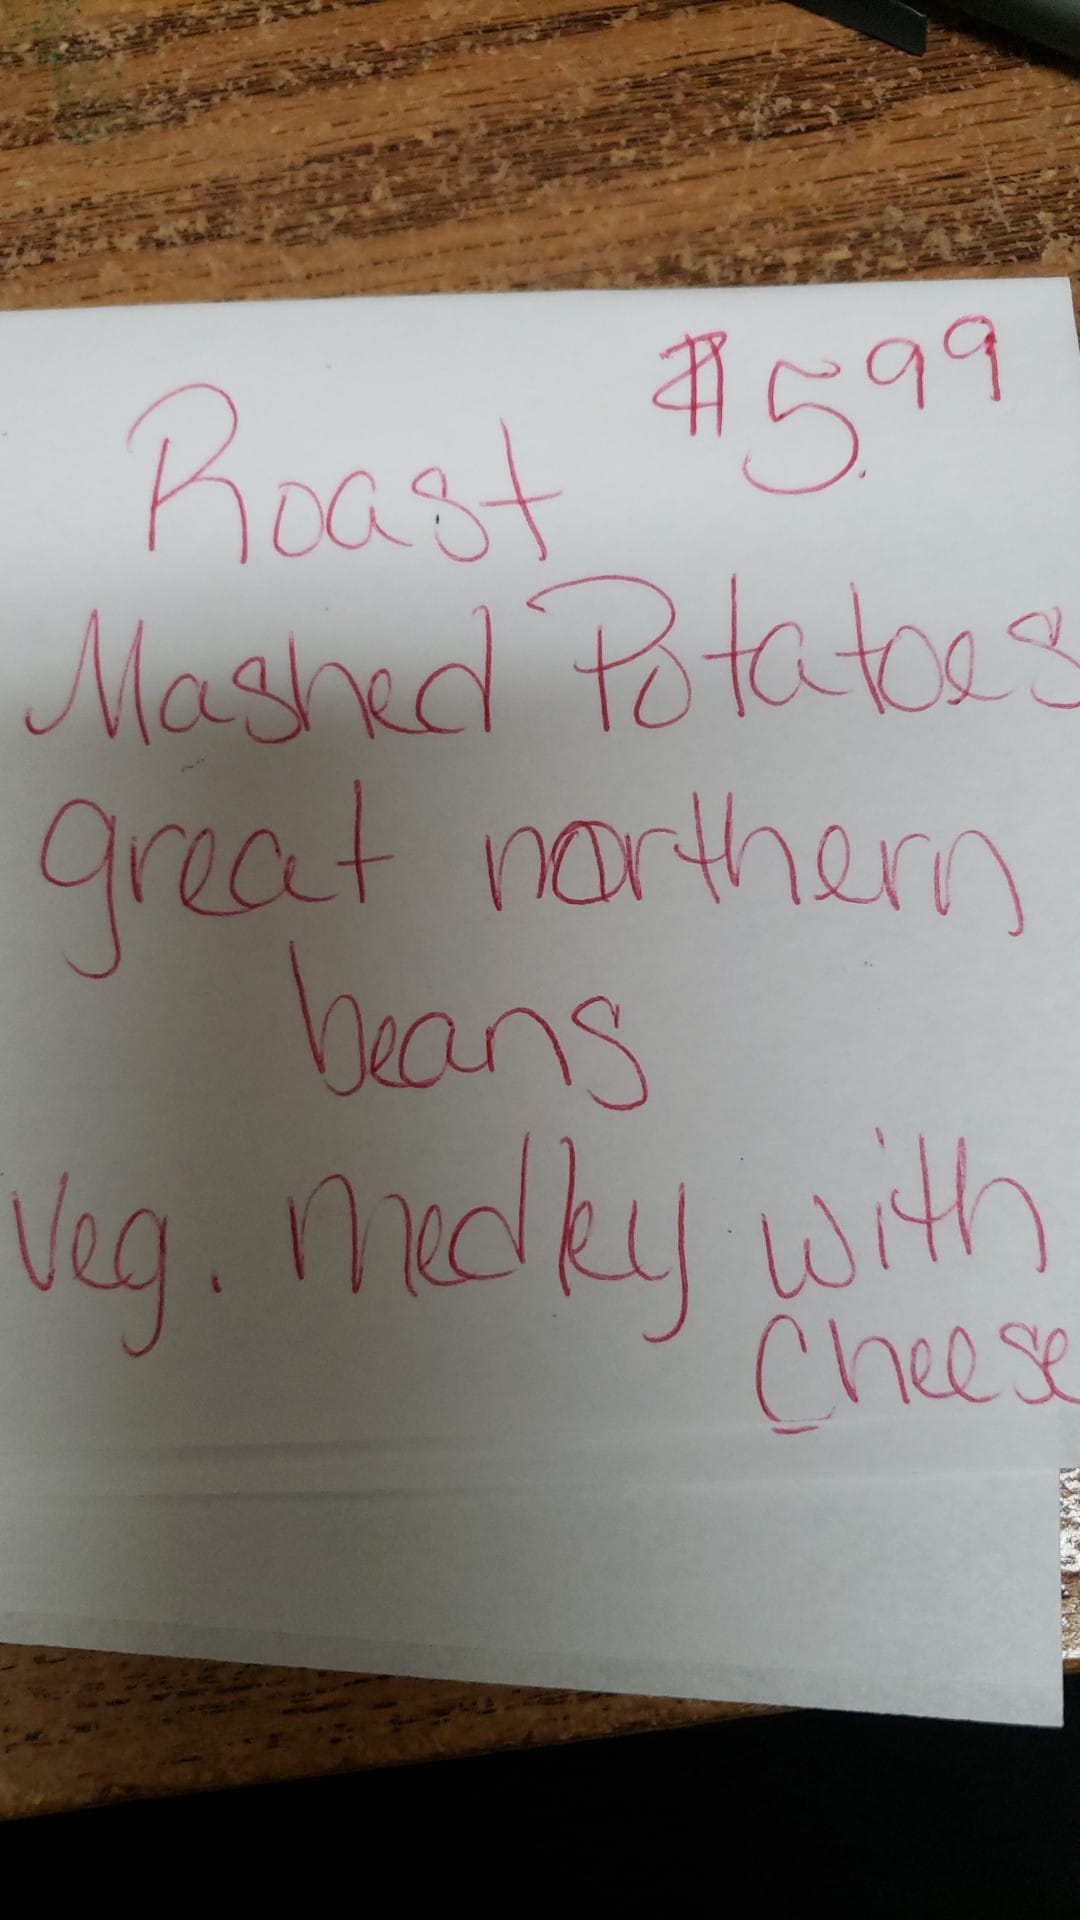 $5.99
Roast
Mashed Potatoes
great northern
beans
Veg. Medley with
Cheese